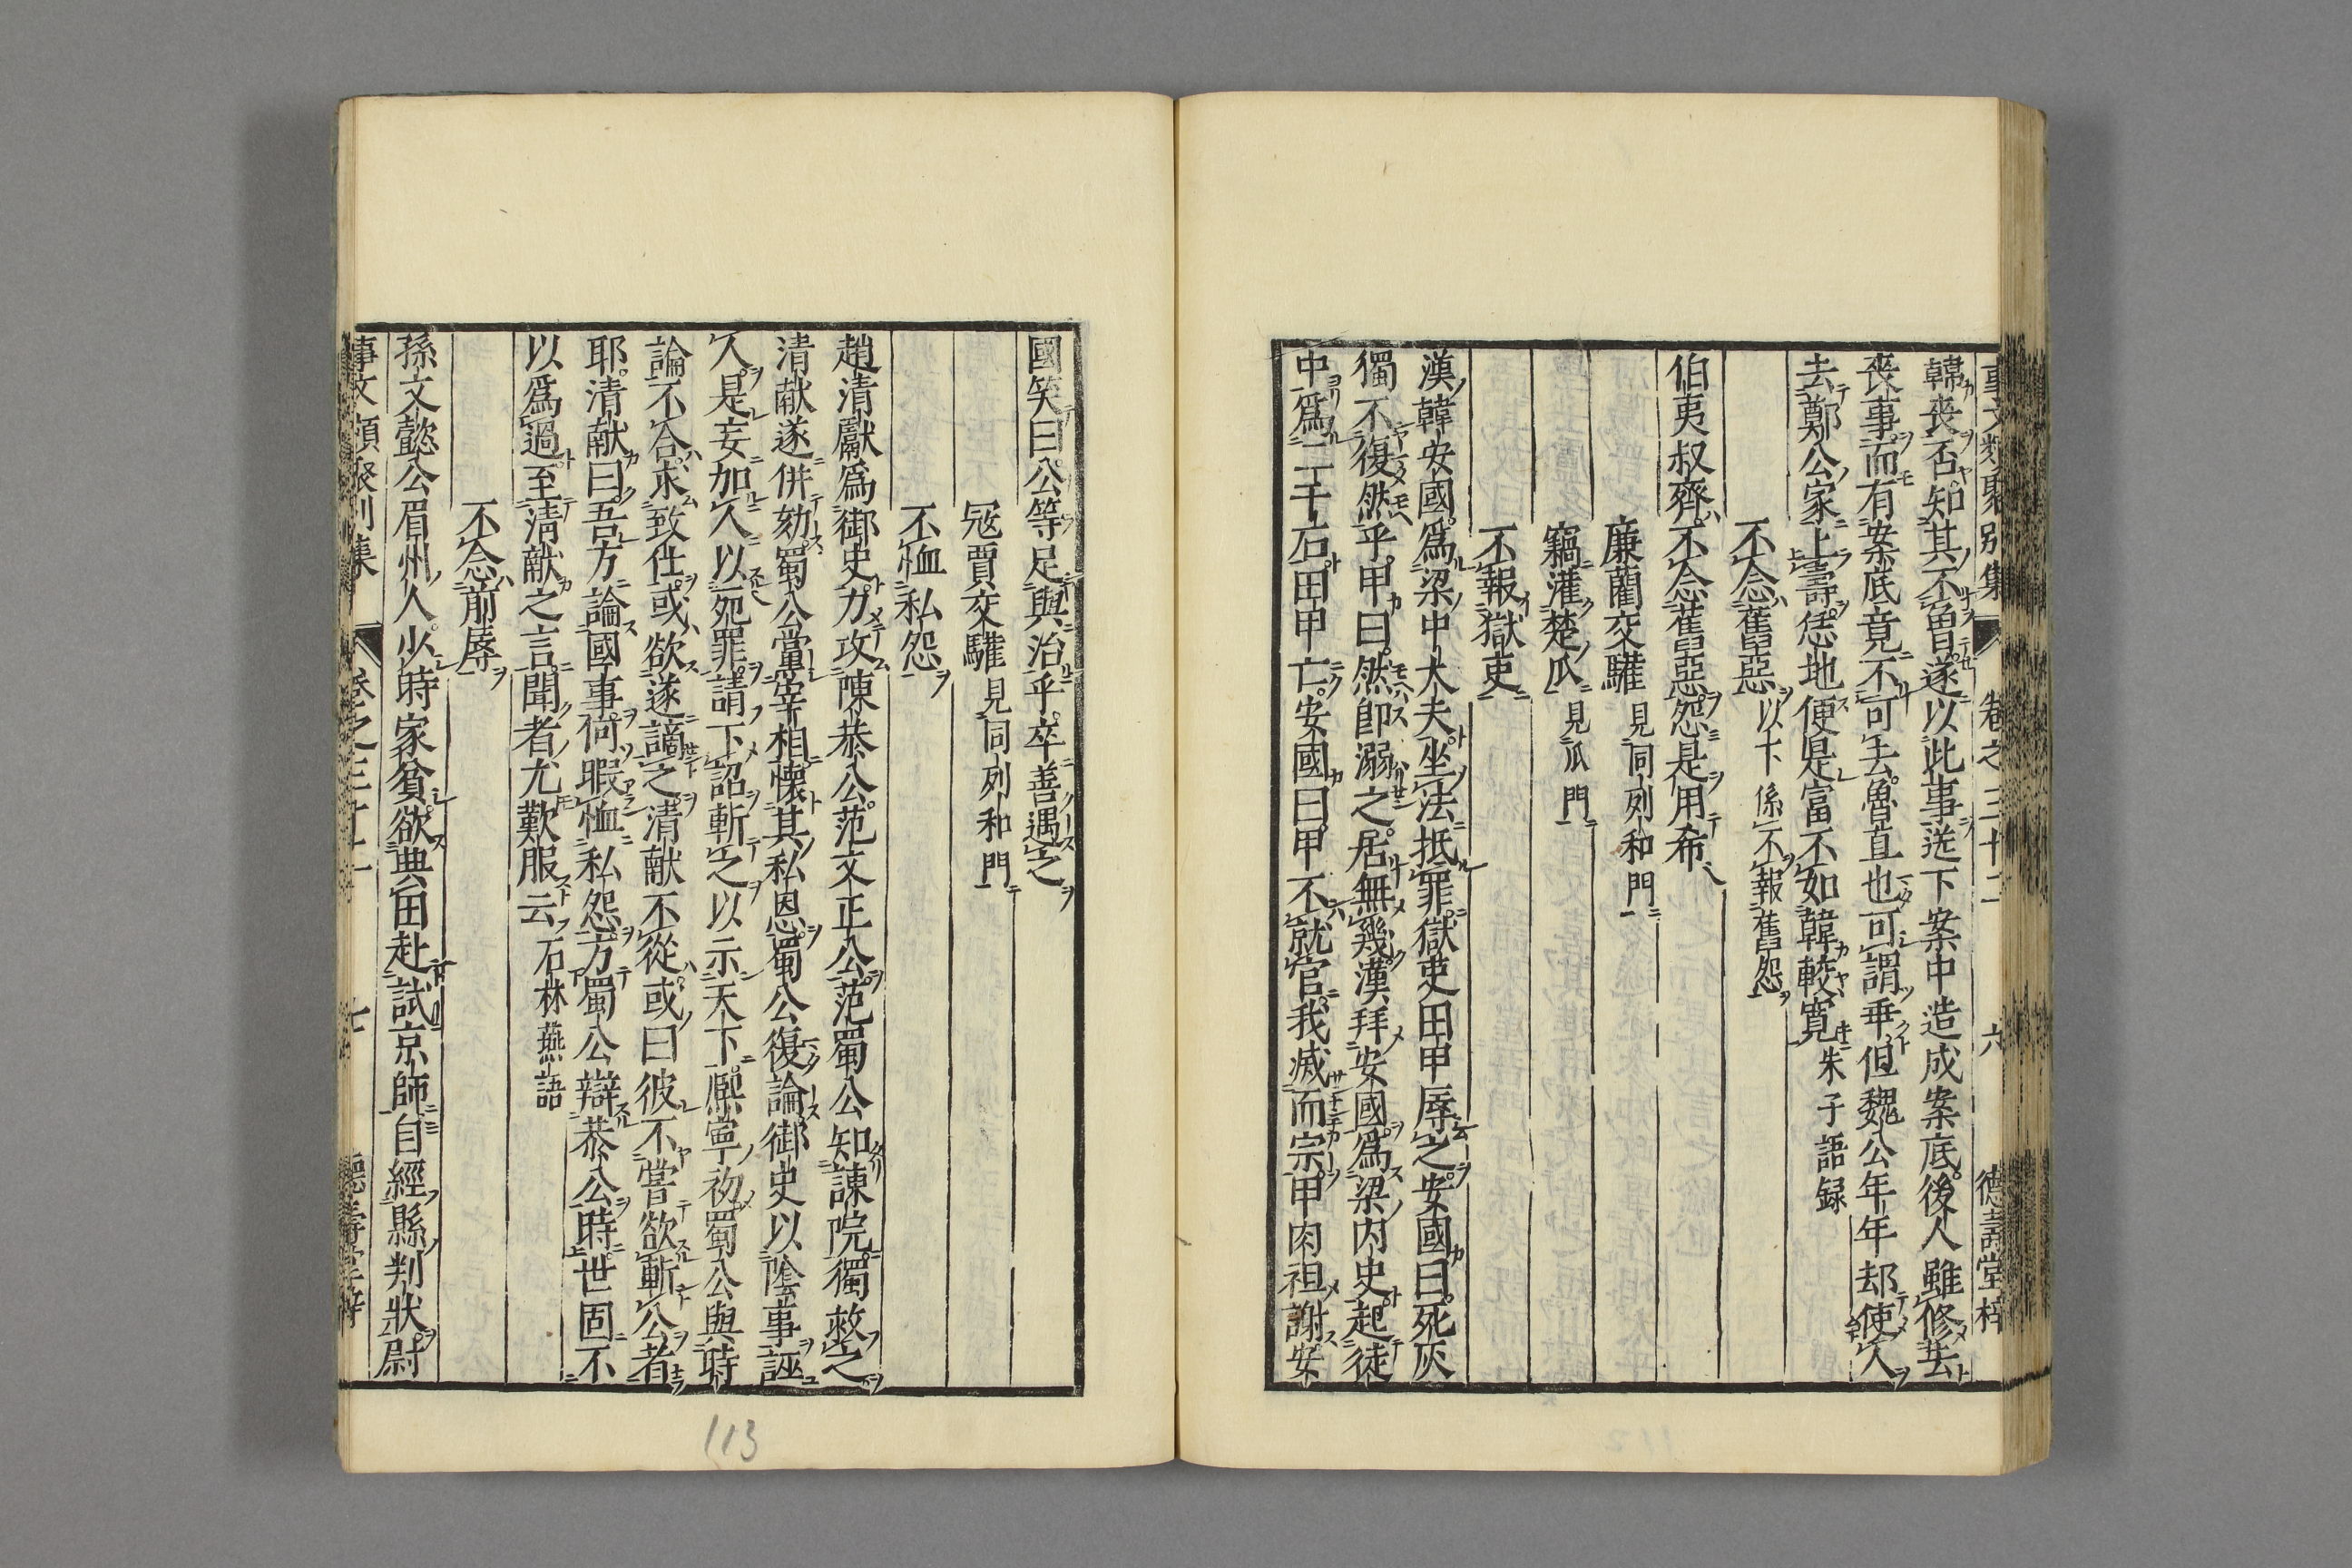 事文類聚別集 卷之三十二 六 德壽堂梓
韓喪否知其不曾遂以此事送下案中造成案底後人雖修去
喪事而有案底竟不可去魯直也可謂乖但魏公年年却使人
去鄭公家上壽恁地便是富不如韓較寬朱子語録
不念舊惡以下係不報舊怨
伯夷叔齊不念舊惡怨是用希
廉藺交驩見同列和門
竊灌楚瓜見瓜門
不報獄吏
漢韓安國爲梁中大夫坐法抵罪獄吏田甲辱之安國曰死灰
獨不復然乎甲曰然即溺之居無幾漢拜安國爲梁内史起徒
中爲二千石田甲亡安國曰甲不就官我滅而宗甲肉袒謝安
國笑曰公等足與治乎卒善遇之
冦賈交驩見同列和門
不恤私怨
趙清獻爲御史力攻陳恭公范文正公范蜀公知諫院獨救之
清献遂併劾蜀公黨宰相懷其私恩蜀公復論御史以陰事誣
人是妄加人以死罪請下詔斬之以示天下熈寧初蜀公與時
論不合求致仕或欲遂謫之清献不從或曰彼不嘗欲斬公者
耶清献曰吾方論國事何暇恤私怨方蜀公辯恭公時世固不
以爲過至淸献之言聞者尤歎服云石林燕語
不念前辱
孫文懿公眉州人少時家貧欲典田赴試京師自經縣判狀尉
事文類聚別集 卷之三十二 七 德壽堂梓
113